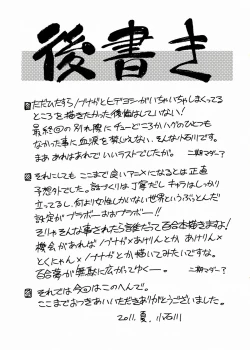 後書き
ただひたすら!ナナカとヒデヨシがいちゃいちゃしまくってる
ところを描きたかった後悔はしていない!
最終回の別れ際にチューどころかハグのひとつも
なかった事に血涙を禁じえない、そんな小石川です。
まああれはあれでいいラストでしたが。二期マダー?
それにしても ここまで良いアニメになるとは正直
予想外でした。話づくりは丁寧だし キャラはしっかり
立ってるし、何より女性しかいない世界というぶっとんだ
設定が ブラボーおおブラボー!!
そりゃそんな事されたら誰だって百合本描きますよ!
機会があれば
とくにゃん×
とか描いてみたいですな。
百合夢が無駄に広がってゆくー。二期マダー?
それでは今回はこのへんで。
ここまでおつきあいいただきありがとうございました。
2011.夏. 小石川